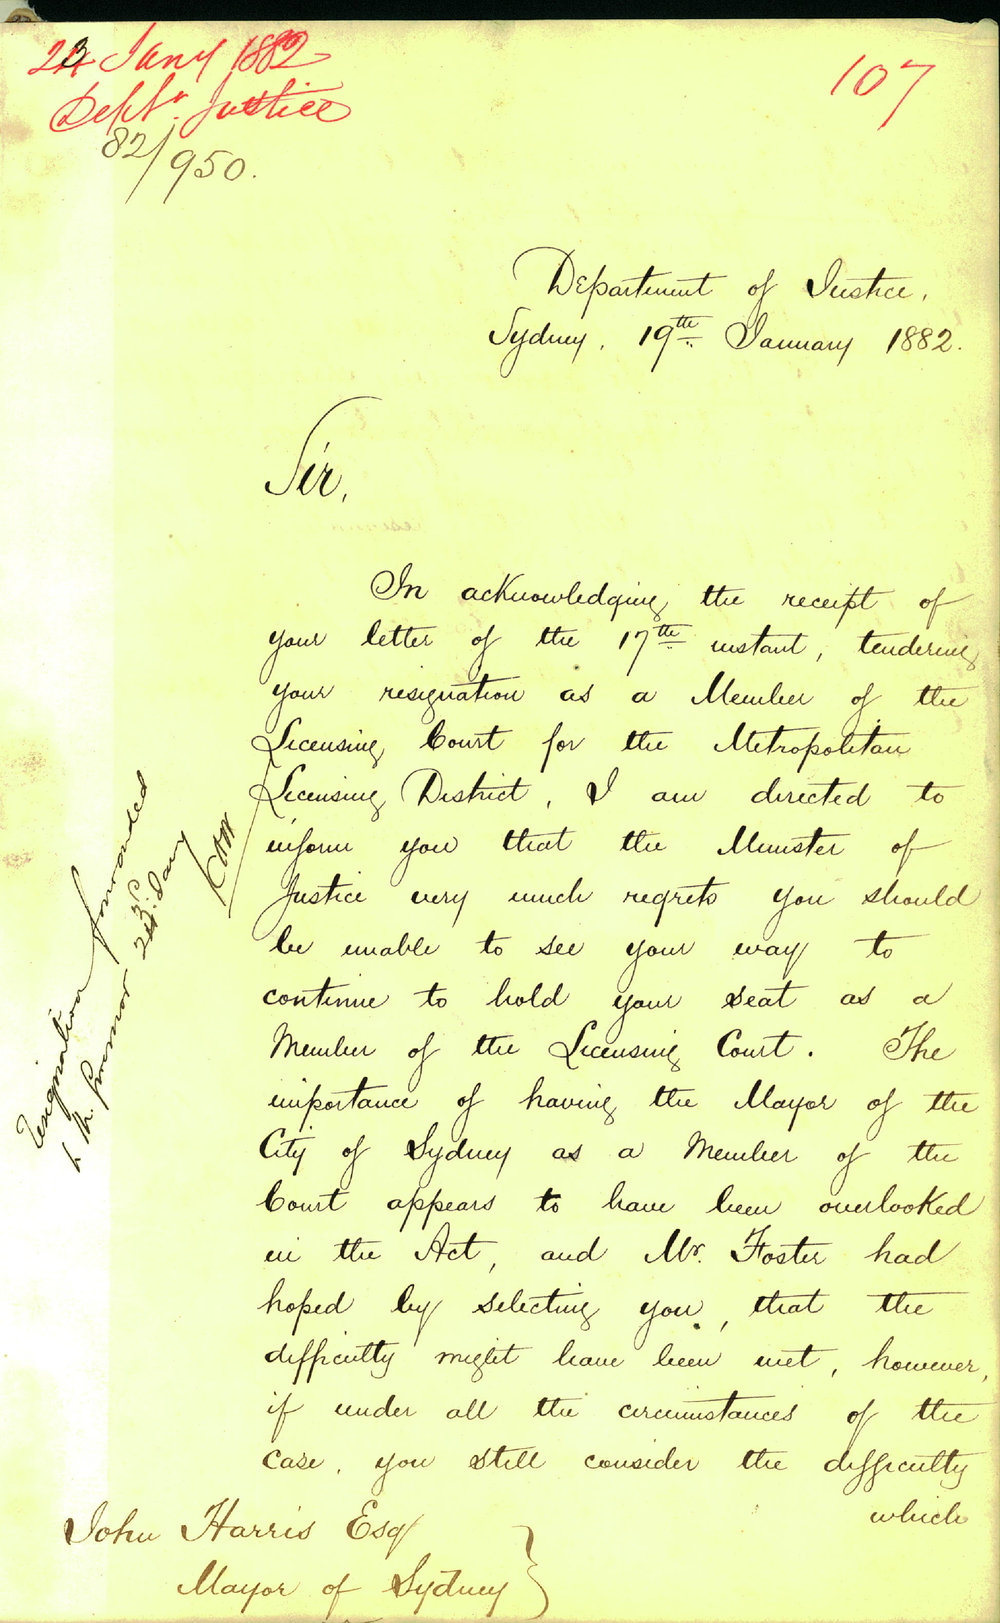 23 Jany 1882
Dept. Justice
82/950.
107
Department of Justice,
Sydney, 19th January 1882.
Sir,
In acknowledging the receipt of
your letter of the 17th instant, tendering
your resignation as a Member of the
Licensing Court for the Metropolitan
Licensing District, I am directed to
inform you that the Minister of
Justice very much regrets you should
be unable to see your way to
continue to hold your seat as a
Member of the Licensing Court. The
importance of having the Mayor of the
City of Sydney as a Member of the
Court appears to have been overlooked
in the Act, and Mr. Foster had
hoped by selecting you, that the
difficulty might have been met, however,
if under all the circumstances of the
case, you still consider the difficulty
which
John Harris Esq
Mayor of Sydney
Resignation forwarded
to the Governor 23rd Jany